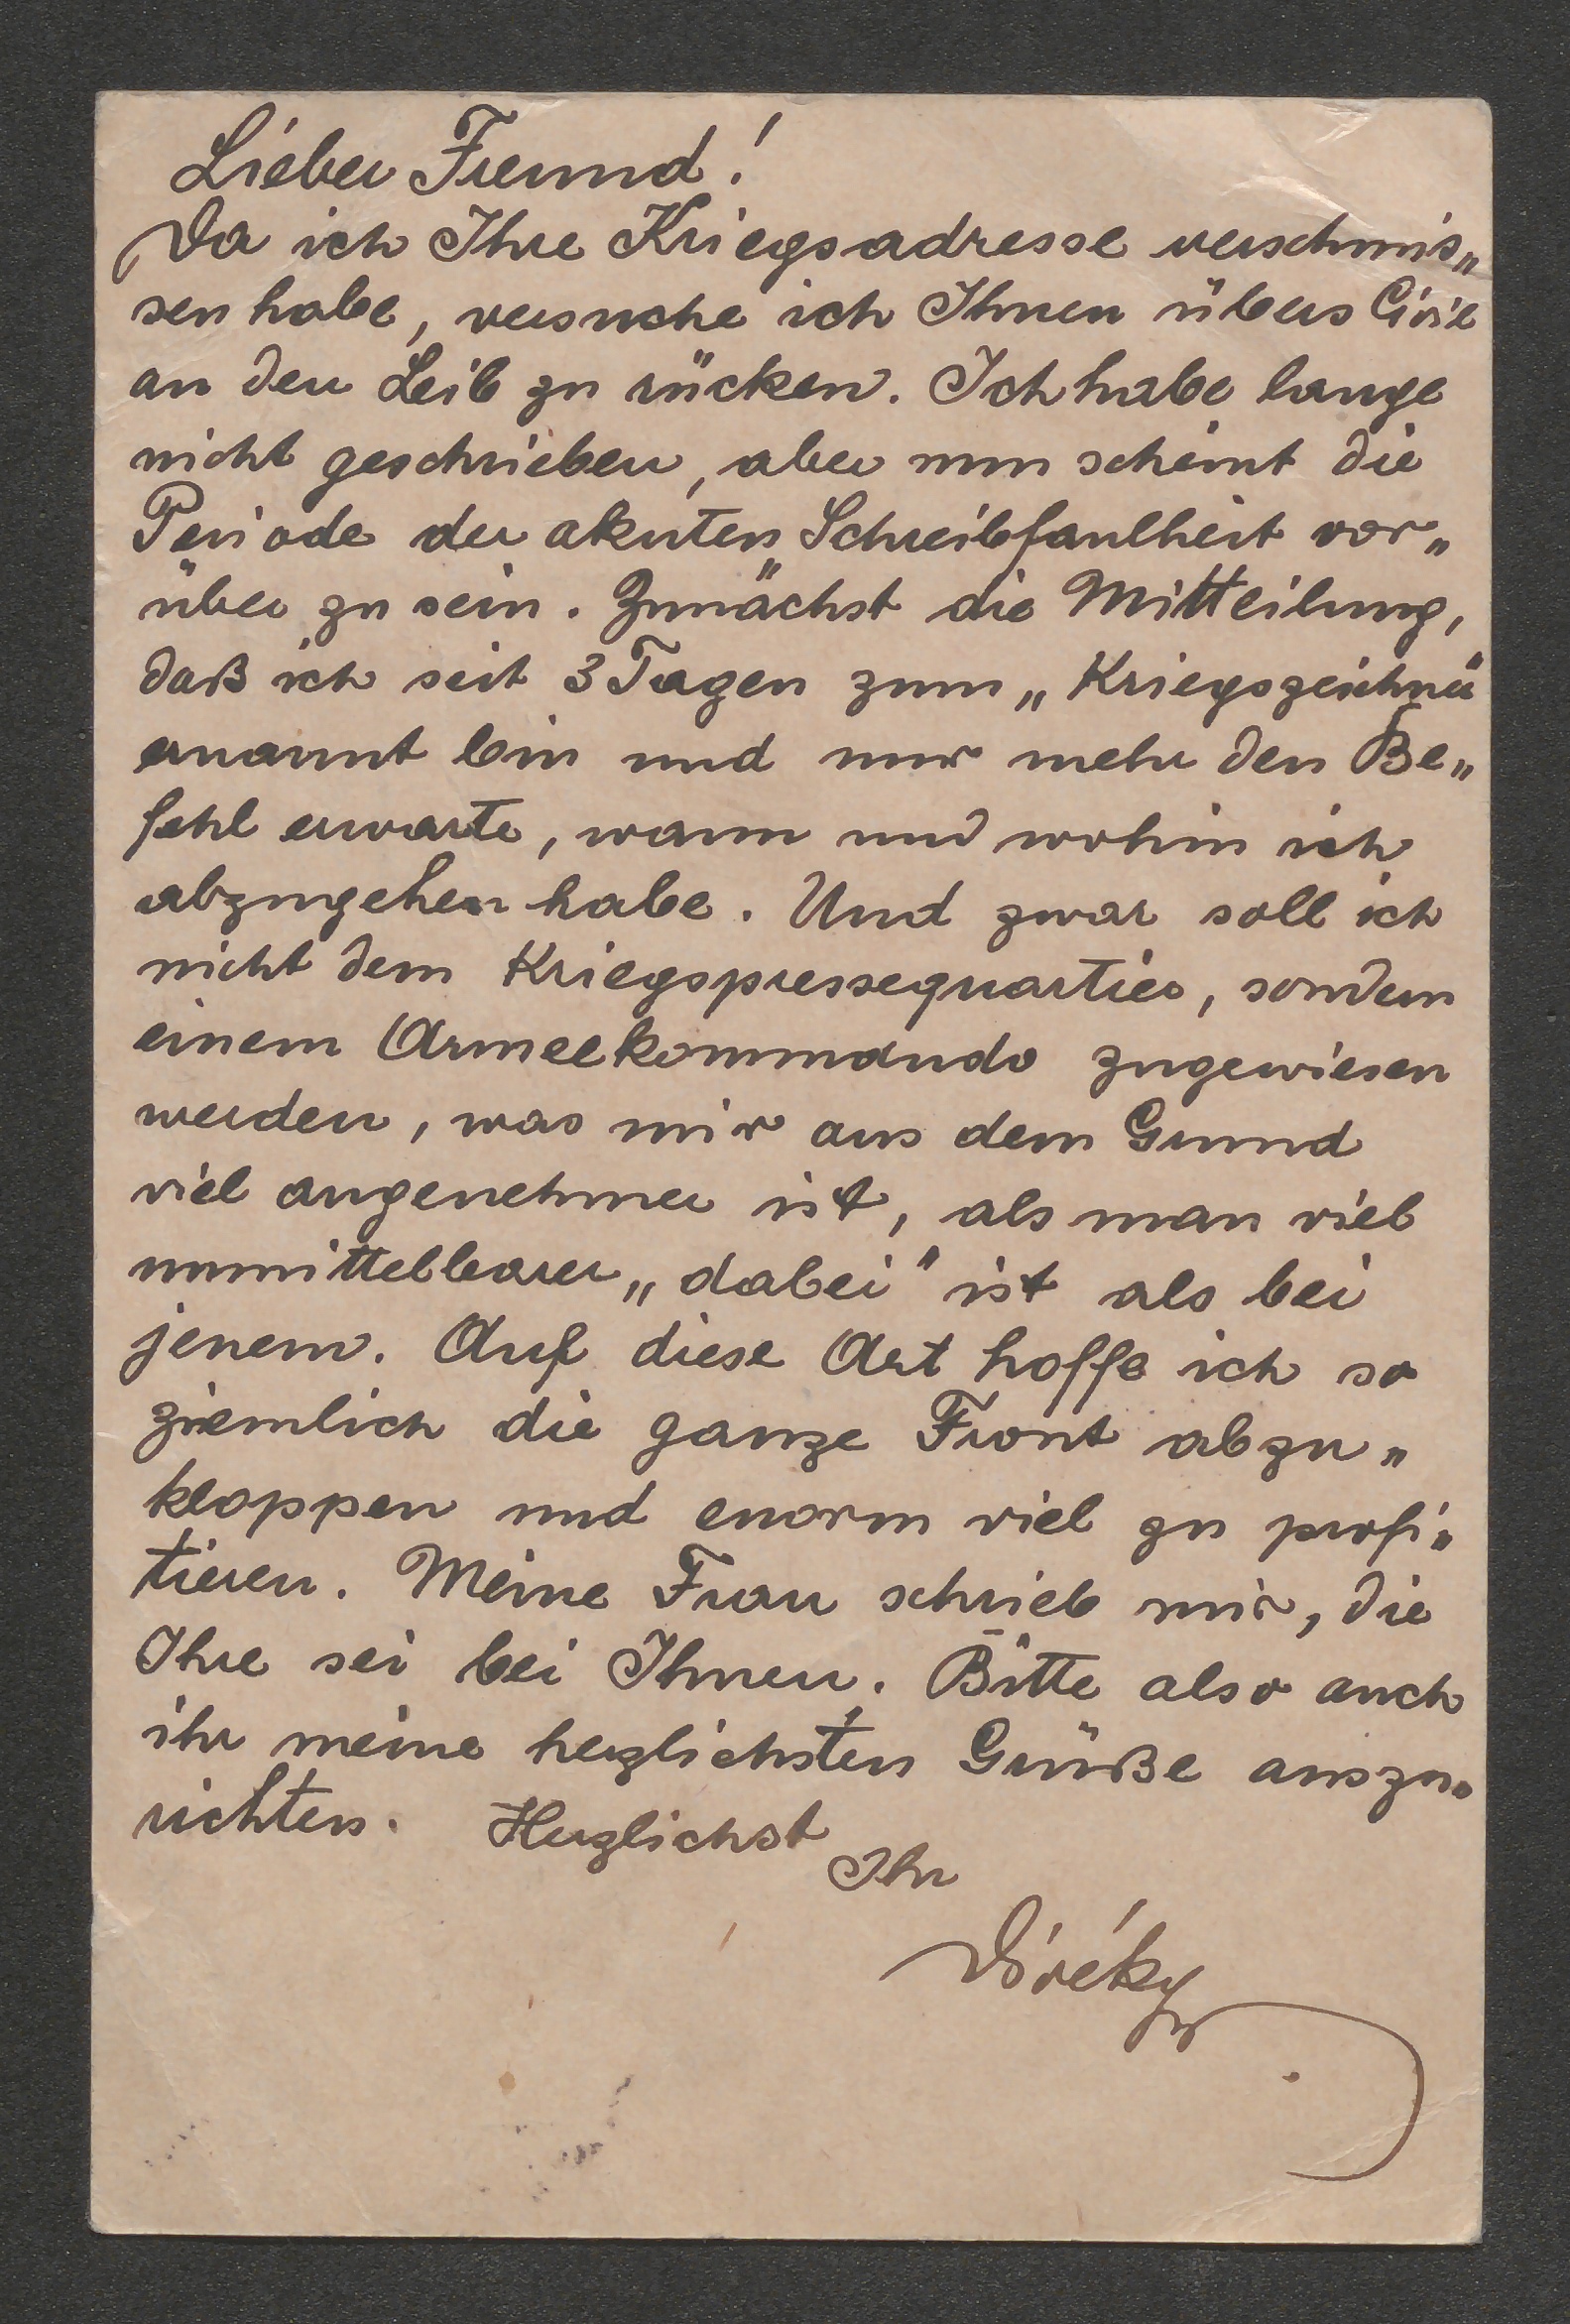 Lieber Freund!
Da ich Ihre Kriegsadresse verschmis„
sen habe, versuche ich Ihnen übers Civil
an den Leib zu rücken. Ich habe lange
nicht geschrieben, aber nun scheint die
Periode der akuten Schreibfaulheit vor„
über zu sein. Zunächst die Mitteilung,
daß ich seit 3 Tagen zum „Kriegszeichner“
ernannt bin und nur mehr den Be„
fehl erwarte, wann und wohin ich
abzugehen habe. Und zwar soll ich
nicht dem Kriegspressequartier, sondern
einem Armeekommando zugewiesen
werden, was mir aus dem Grund
viel angenehmer ist, als man viel
unmittelbarer „dabei“ ist als bei
jenem. Auf diese Art hoffe ich so
ziemlich die ganze Front abzu„
kloppen und enorm viel zu profi„
tieren. Meine Frau schrieb mir, die
Ihre sei bei Ihnen. Bitte also auch
ihr meine herzlichsten Grüße auszu„
richten. Herzlichst
Ihr